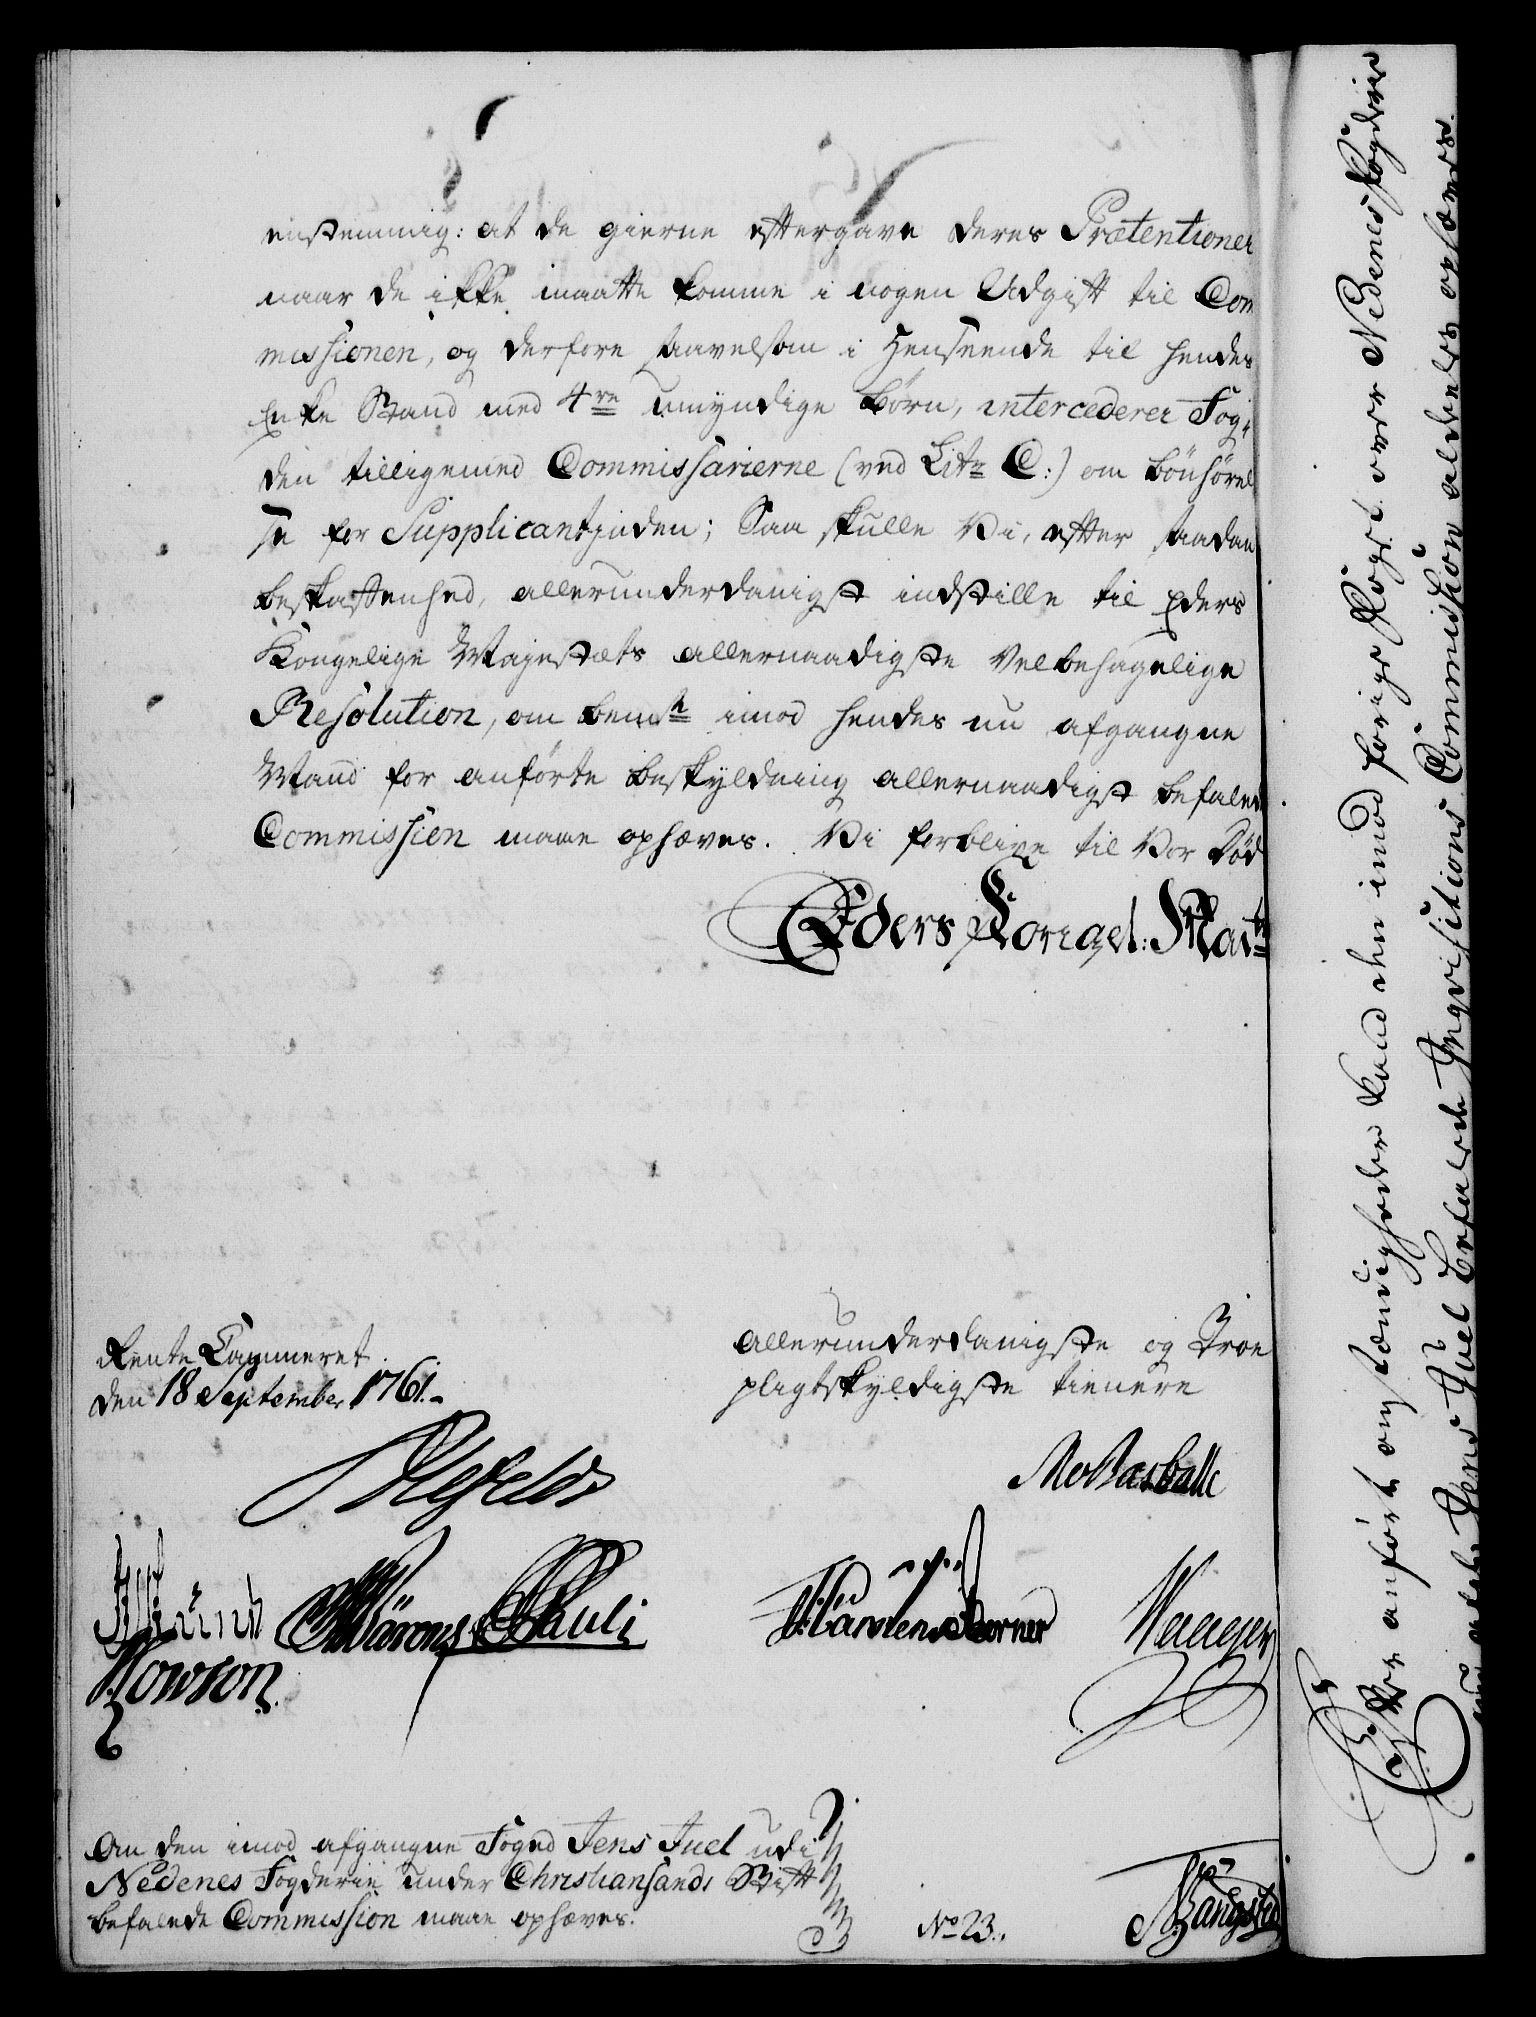 eenstemmig: at de gierne eftergave deres Prætentioner
naar de ikke maatte komme i nogen Udgift til Com
missionen, og derfore saavelsom i Henseende til hendes
Enke Stand med 4re umyndige Børn, intercederer Fog-
den tilligemed Commissarierne (ved Litr C:) om bønhørel
se for Supplicantinden; Saa skulle Vi, efter saadan
beskaffenhed, allerunderdanigst indstille til Eders
Kongelige Majestæts allernaadigste Velbehagelige
Resolution, om bemte imod hendes nu afgangne
Mand for anførte beskyldning allernaadigst befalede
Commission maae ophæves. Vi forblive til Vor Død
Eders Kongel: Maits
Rente Cammeret
den 18 September 1761.
allerunderdanigste og Troe
pligtskyldigste tienere
Pauli
Rowson
Om den imod afgangne Foged Jens Juel udi
Nedenes Fogderie under Christiansands Stift
befalede Commission maae ophæves.
No 23.
Efter anførte omstændigheder kand den imod forige Foget over Nedenes Fogderie
Jens Juel befalede Inqvisitions Commission aldeles ophæves.